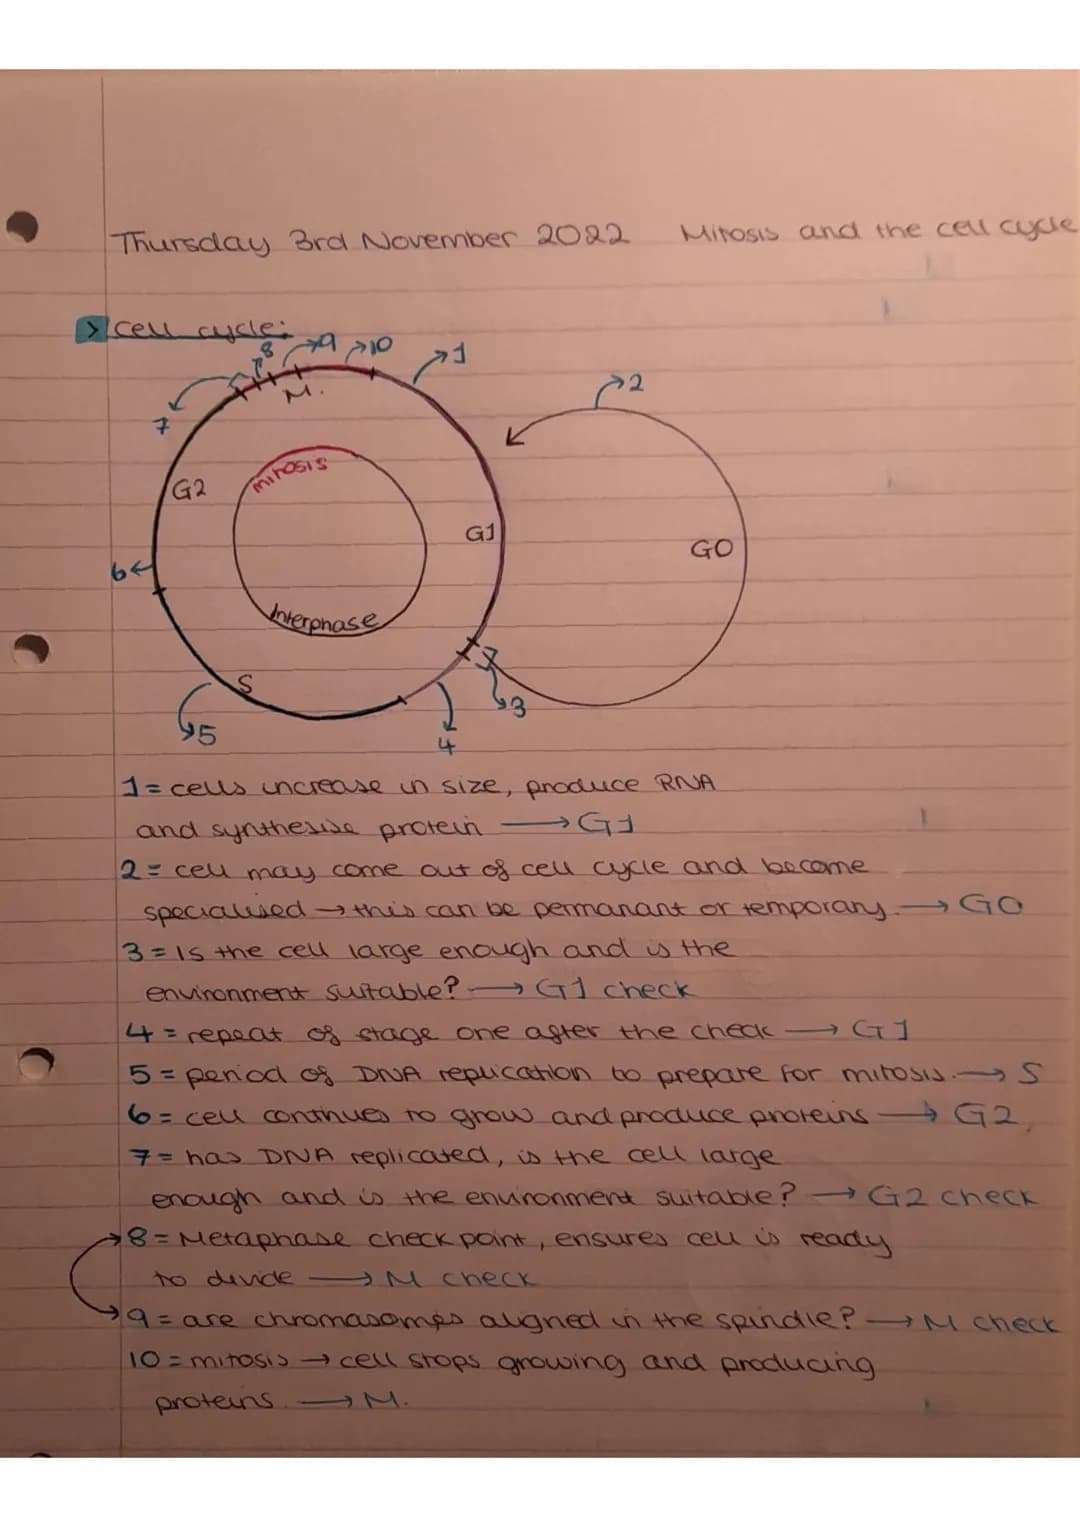 Thursday 3rd November 2022 Mitosis and the cell cycle
> Cell cycle:
8 9 10 1
2
7
M.
mitosis
G2
G1
G0
6
Interphase
S
3
5
4
1 = cells increase in size, produce RNA
and synthesise protein → G1
2 = cell may come out of cell cycle and become
specialised → this can be permanant or temporary. → G0
3 = Is the cell large enough and is the
environment suitable? → G1 check
4 = repeat of stage one after the check → G1
5 = period of DNA replication to prepare for mitosis. → S
6 = cell continues to grow and produce proteins → G2
7 = has DNA replicated, is the cell large
enough and is the environment suitable? → G2 check
8 = Metaphase check point, ensures cell is ready
to divide → M check
9 = are chromasomes aligned in the spindle? → M check
10 = mitosis → cell stops growing and producing
proteins. → M.